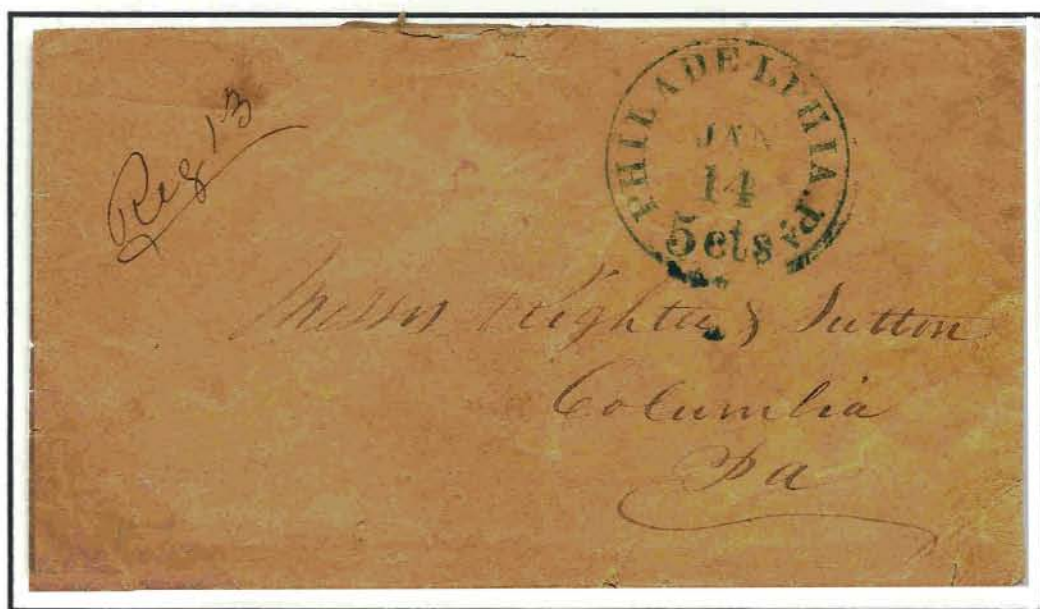 Reg 13
PHILADELPHIA. Pa
JAN
14
5cts
Messrs & Sutton
Columbia
Pa